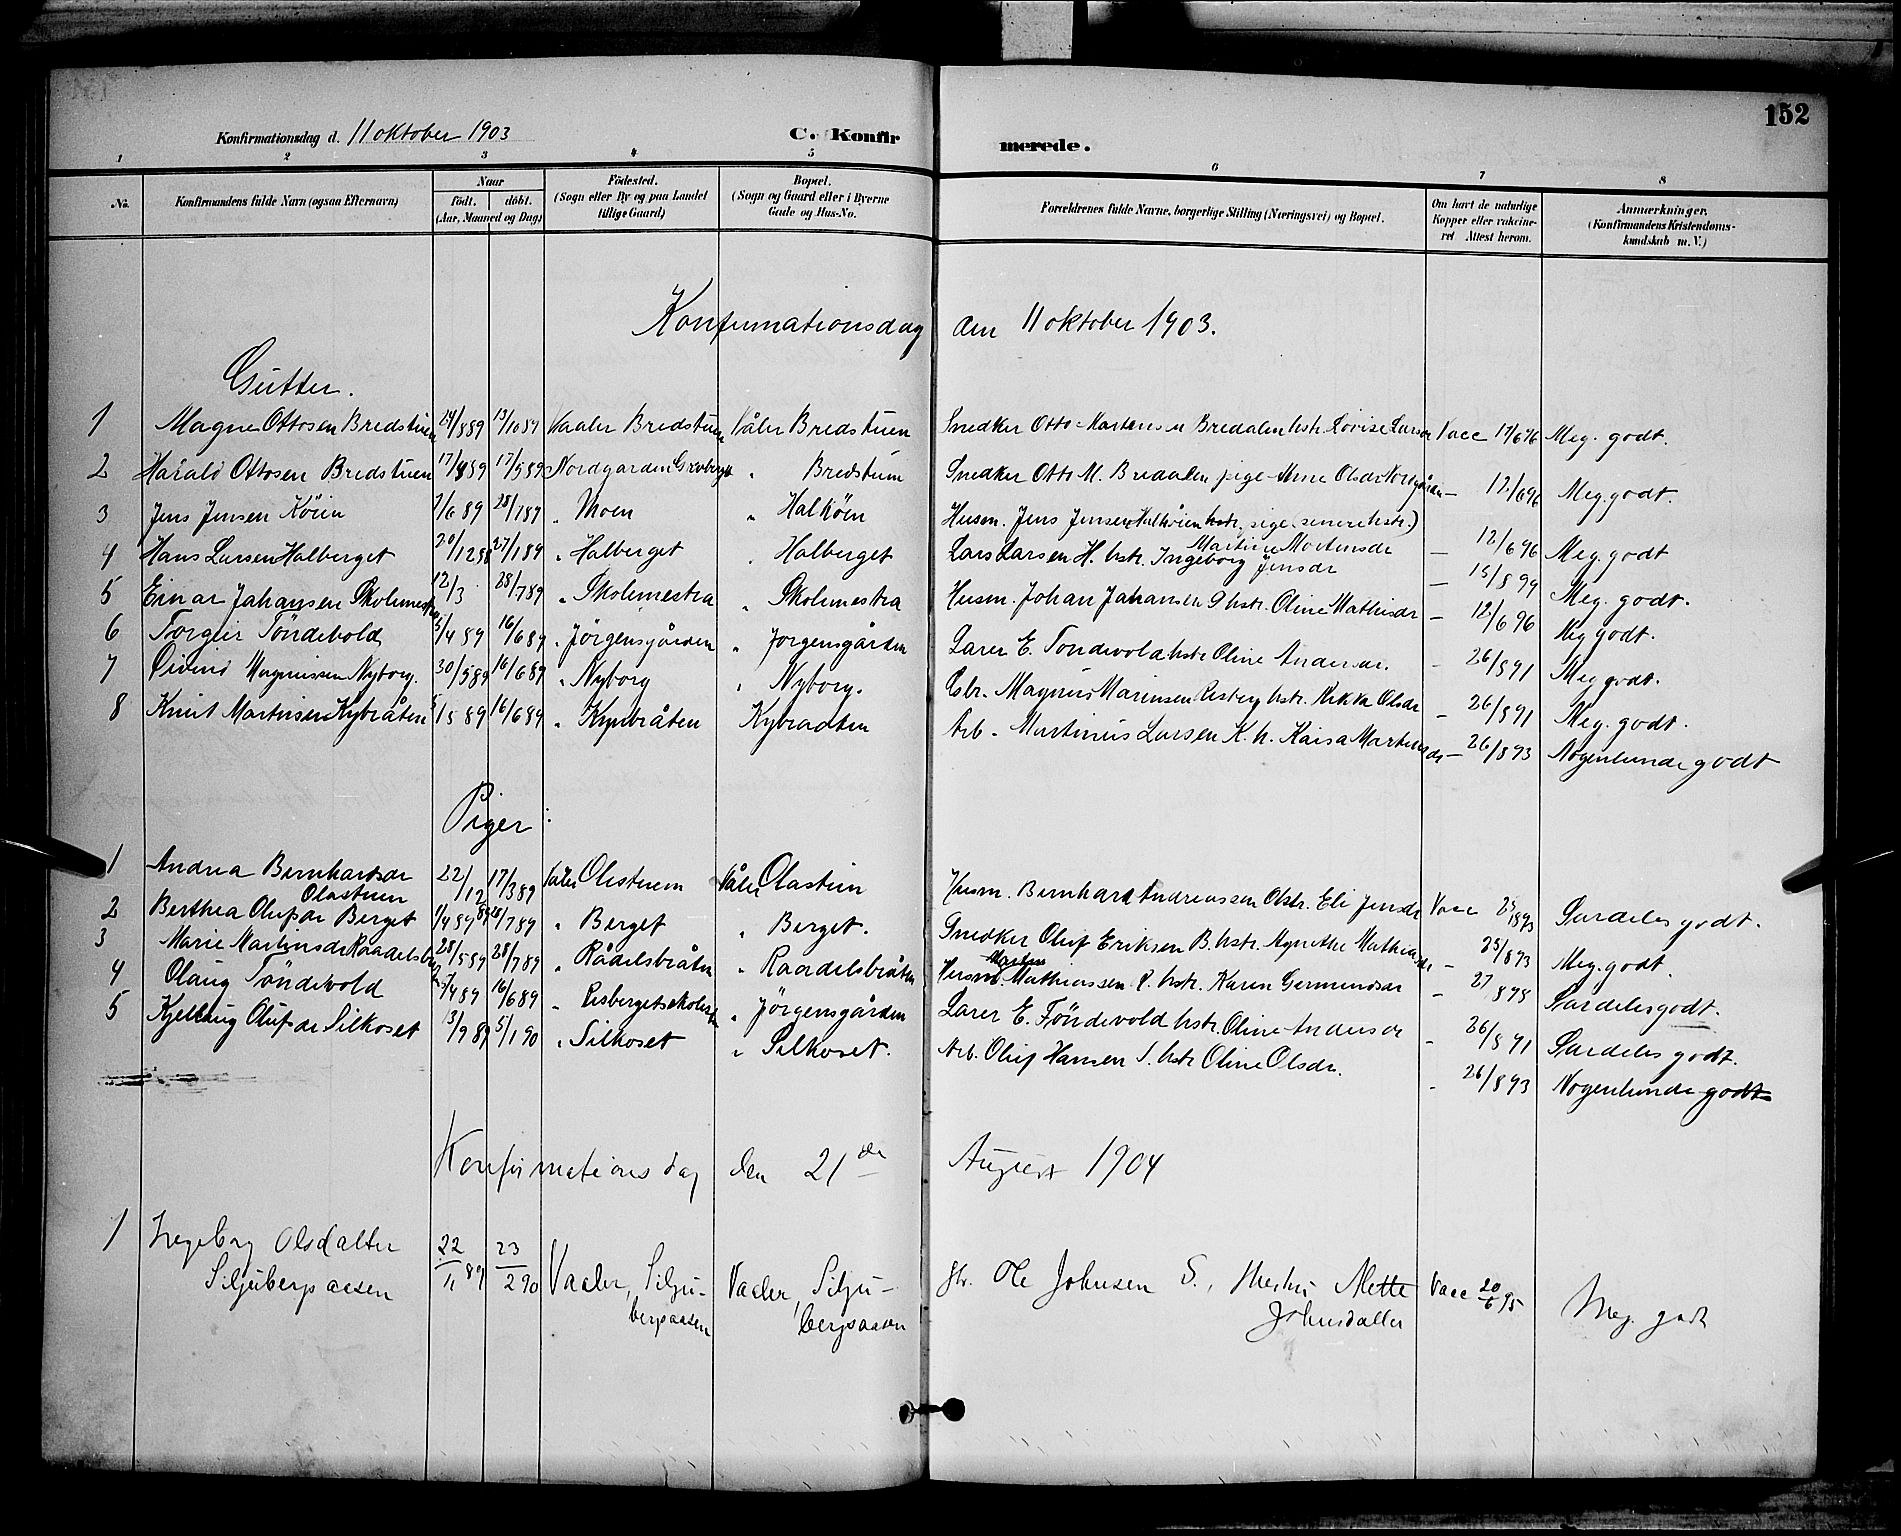 152
Konfirmationsdag d. 11 oktober 1903 C. Konfirmerede.
1 2 3 4 5 6 7 8
No. Konfirmandens fulde Navn (ogsaa Efternavn) Naar födt. döbt. (Aar, Maaned og Dag) Födested. (Sogn eller By og paa Landet tillige Gaard) Bopæl. (Sogn og Gaard eller i Byerne Gade og Hus-No. Forældrenes fulde Navne, borgerlige Stilling (Næringsvei) og Bopæl. Om havt de naturlige Kopper eller vakcineret Attest herom. Anmærkninger. (Konfirmandens Kristendomskundskab m. V.)
Konfirmationsdag den 11 oktober 1903.
Gutter.
1 Magne Ottosen Bredstuen 24/889 13/1089 Vaaler Bredstuen Våler Bredstuen Snedker Otto Martens n Bredalen hstr. Lovise Larsdr Vacc 17/696 Meg. godt.
2 Harald Ottosen Bredstuen 17/489 17/589 Nordgarden " Bredstuen Snedker Otto M. Bredalen pige Anne Olsdr Nordgården – 12/696 Meg. godt.
3 Jens Jensen Köien 7/689 28/789 " Moen " Halköen Husm. Jens Jensen Halköien hstr. pige (senere hstr.) Martine Mortensdr – 12/696 Meg. godt
4 Hans Larsen Halberget 20/1288 27/189 " Halberget " Halberget Lars Larsen H. hstr. Ingeborg Jensdr – 15/899 Meg. godt.
5 Einar Johansen Skolmestra 12/3 28/789 " Skolmestra " Skolmestra Husm. Johan Johansen S hstr. Oline Mathisdr – 12/696 Meg godt.
6 Torgeir Töndevold 5/489 16/689 " Jörgensgården " Jorgensgården Lærer E. Tondevold hstr Oline Andersdr. – 26/891 Meg godt.
7 Öivind Magnussen Nyborg. 30/589 16/689 " Nyborg " Nyborg. Gbr. Magnus Marinsen Risberg hstr. Rikka Olsdr – 26/891 Meg. godt.
8 Knut Martinsen Kybråten 5/589 16/689 " Kynbråten Kybraaten Arb. Martinus Larsen K. h. Kaisa Martinsdr – 26/893 Nogenlunde godt
Piger:
1 Andrea Bernhardsdr Olastuen 22/12 17/389 Våler Olastuen Våler Olastuen Husm. Bernhard Andreassen O hstr. Eli Jensdr Vacc 25/893 Særdeles godt.
2 Berthea Olufsdr Berget 9/489 28/789 " Berget " Berget. Snedker Oluf Eriksen B. hstr. Agnethe Mathiasdr – 25/893 Meg. godt.
3 Marie Martinsdr Raadelsbråten 28/589 28/789 " Rådelsbråten " Raadelsbråten Husm. Martin Mathiassen R. hstr. Karen Germundsdr – 27/898 Særdeles godt.
4 Olaug Töndevold 5/489 16/689 " Risbergetskolen " Jörgensgården Lærer E. Töndevold hstr. Oline Andersdr – 26/891 Særdeles godt.
5 Kjellaug Olufsdr Silkoset 13/989 5/190 " Silkoset " Silkoset. Arb. Oluf Hansen S. hstr Oline Olsdr. – 26/893 Nogenlunde godt
Konfirmationsdag den 21de August 1904
1 Ingeborg Olsdatter Siljubergaasen 22/11 89 23/2 90 Vaaler, Siljubergaasen Vaaler, Siljubergaasen Gbr. Ole Johnsen S., Hustru Mette Johnsdatter Vacc 20/6 95 Meg. godt